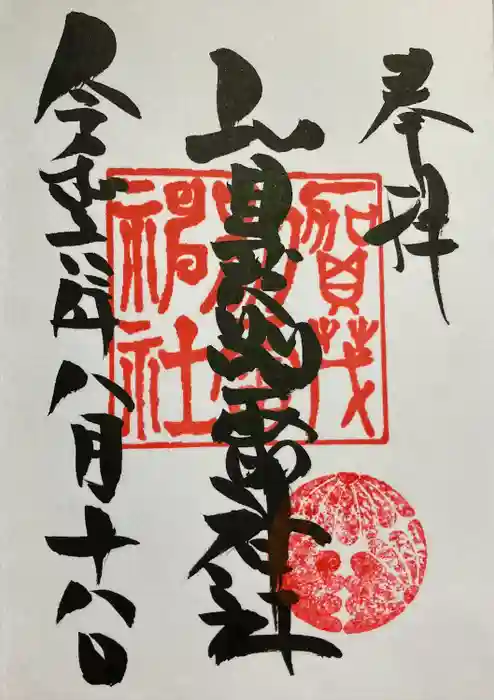 奉拝
賀茂別雷神社
令和年八月十八日
賀茂
別雷
神社